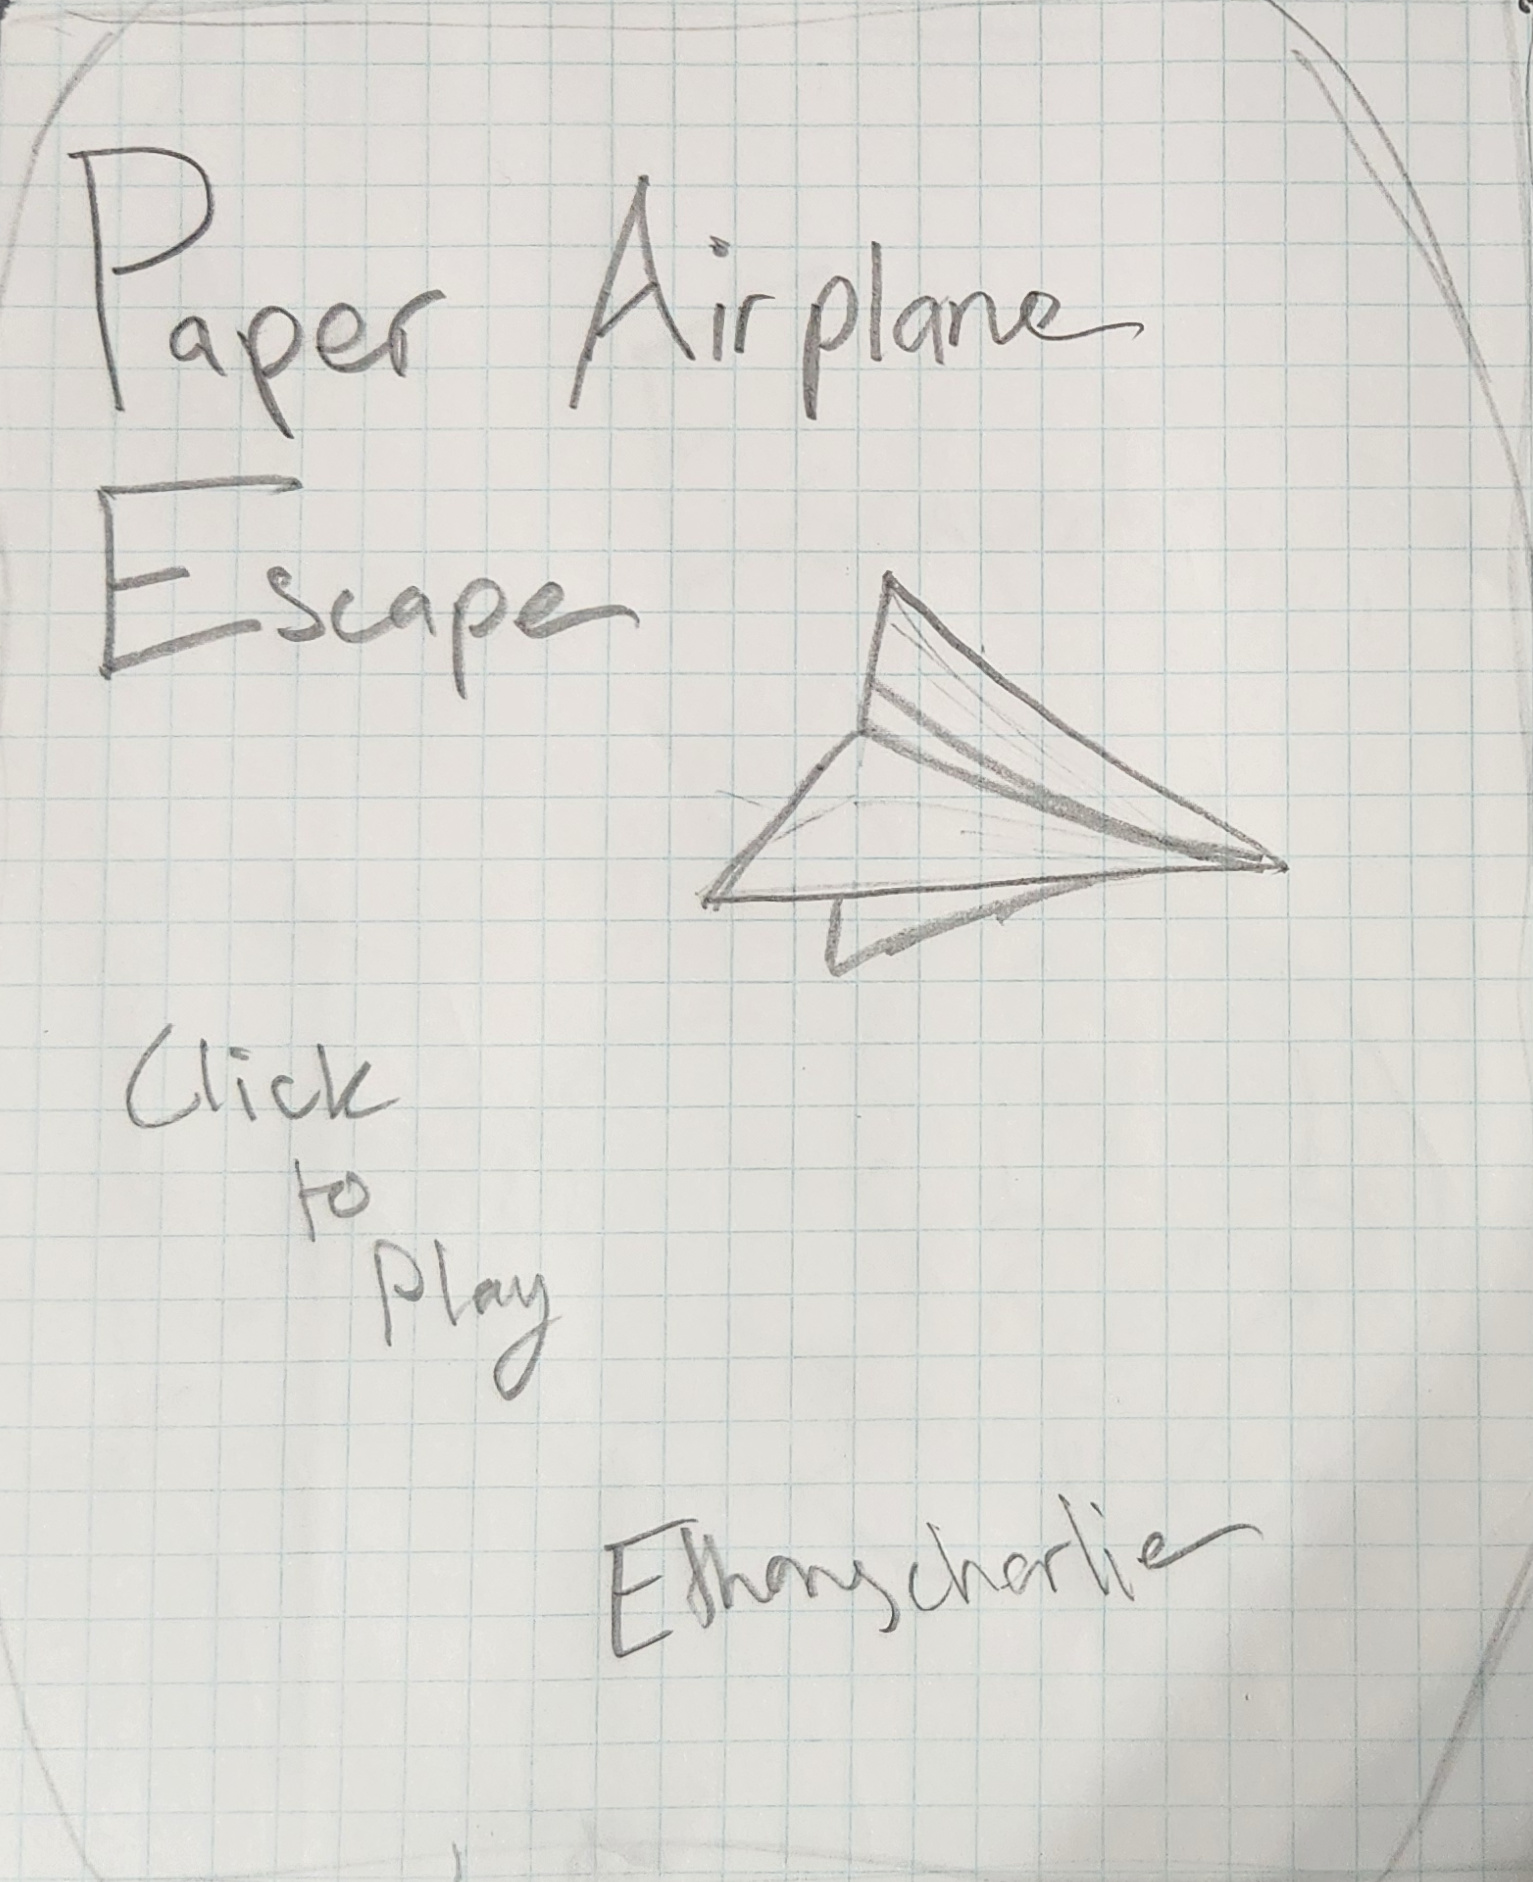 Paper Airplane
Escape
Click
to
Play
Ethanscharlie